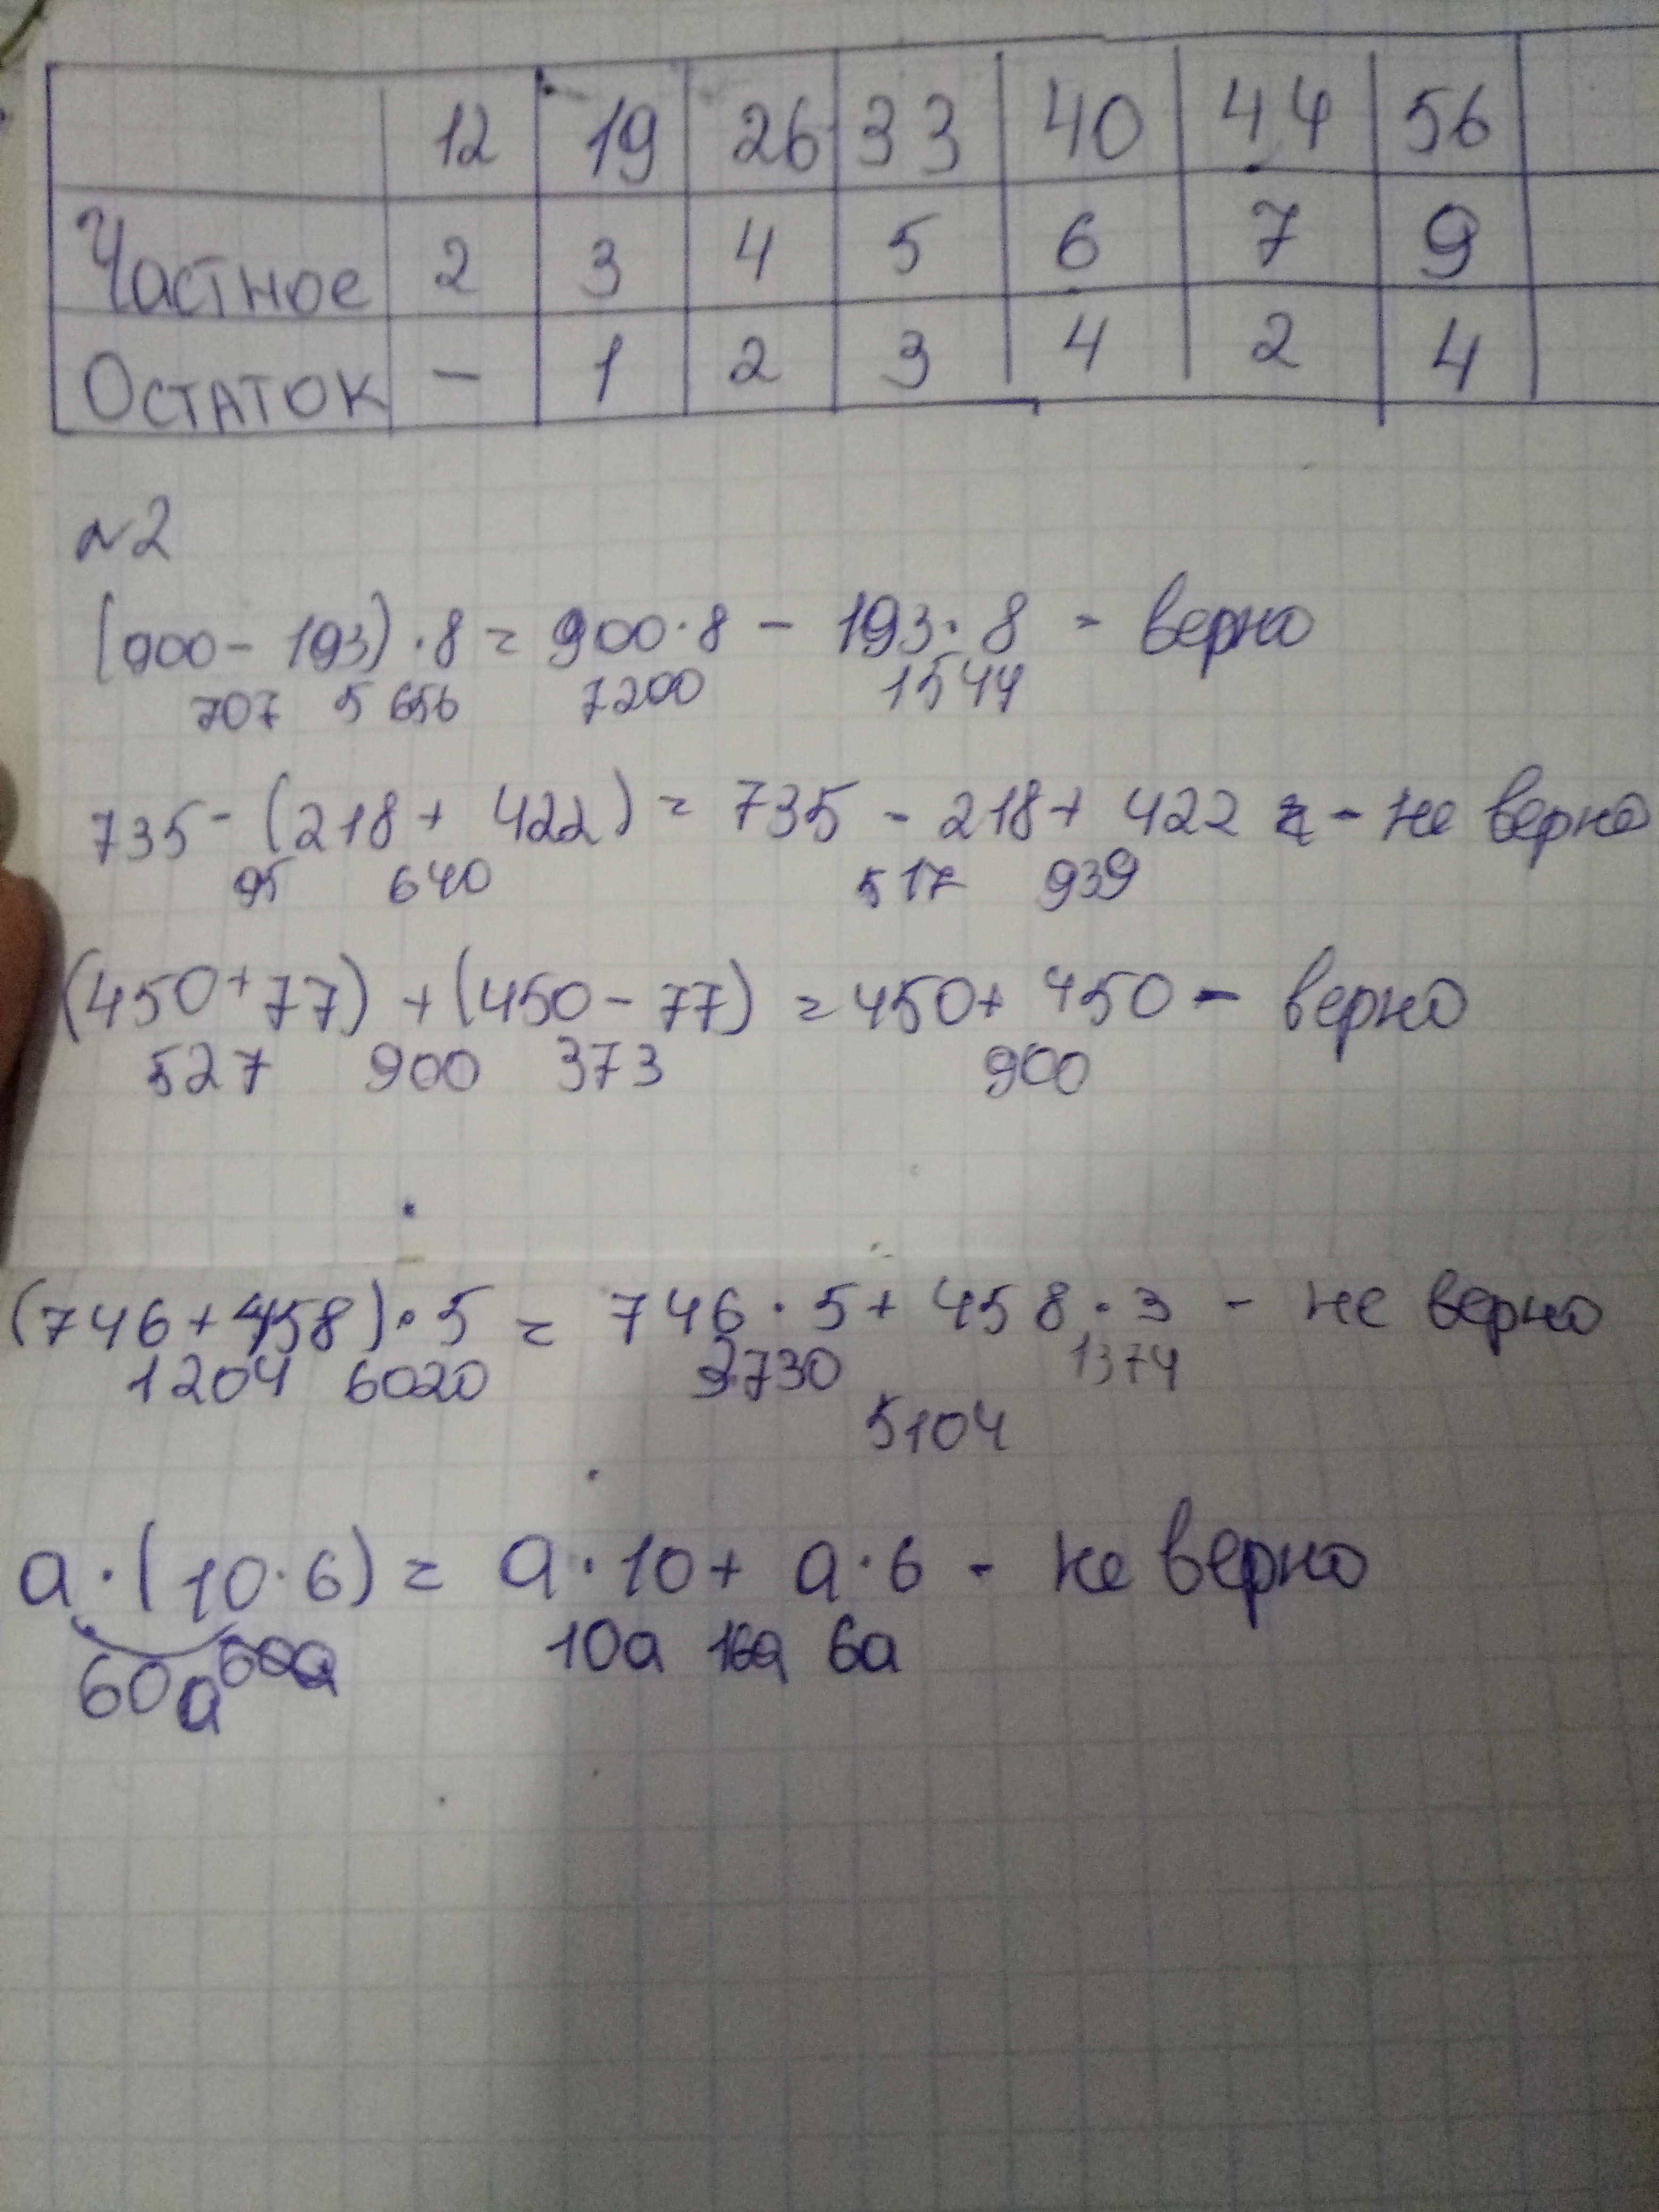 12 19 26 33 40 44 56
Частное 2 3 4 5 6 7 9
Остаток - 1 2 3 4 2 4
N2
(900 - 193) · 8 = 900 · 8 - 193 · 8 - верно
707 5656 7200 1544
735 - (218 + 422) = 735 - 218 + 422 - не верно
95 640 517 939
(450 + 77) + (450 - 77) = 450 + 450 - верно
527 900 373 900
(746 + 458) · 5 = 746 · 5 + 458 · 3 - не верно
1204 6020 3730 1374
5104
a · (10 · 6) = a · 10 + a · 6 - не верно
60a 10a 16a 6a